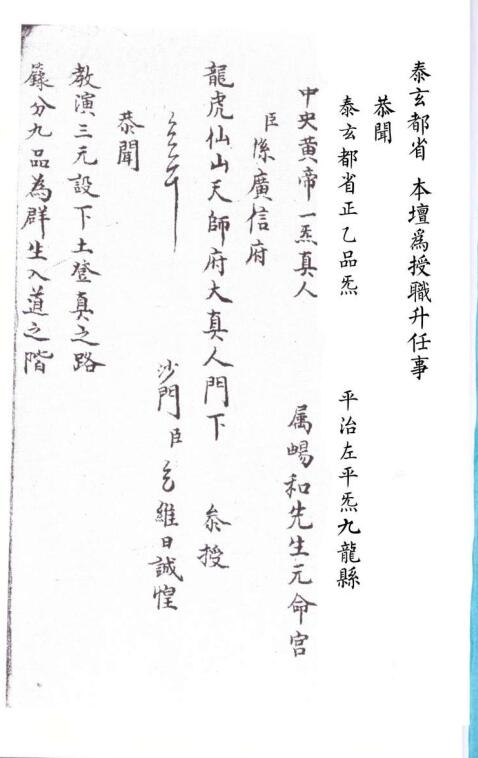 泰玄都省 本壇爲授職升任事
恭聞
泰玄都省正乙品炁 平治左平炁九龍縣
中央黃帝一炁真人 属暘和先生元命宮
臣係廣信府
龍虎仙山天師府大真人門下 叅授
沙門臣乞維日誠惶
恭聞
教演三元設下土登真之路
籙分九品為群生入道之階